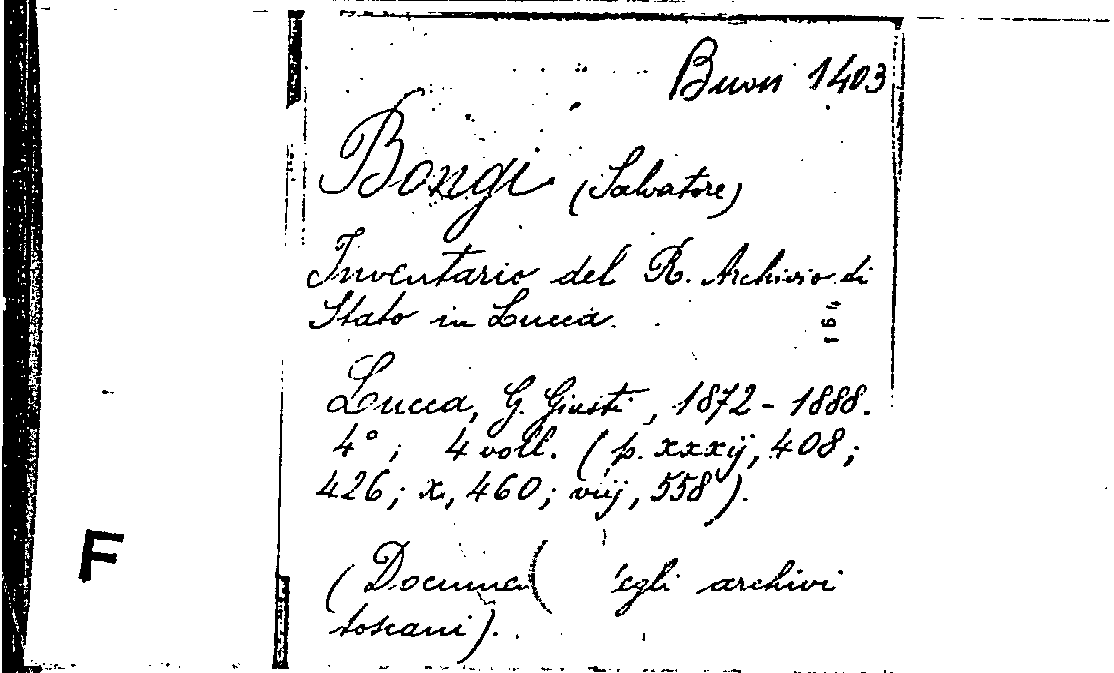 Buon 1403
Bongi (Salvatore)
Inventario del R. Archivio di
Stato in Lucca.
164
Lucca, G. Giusti, 1872-1888.
4°; 4 voll. (p. xxxij, 408;
426; x, 460; viij, 558).
(Docume egli archivi
toscani).
F